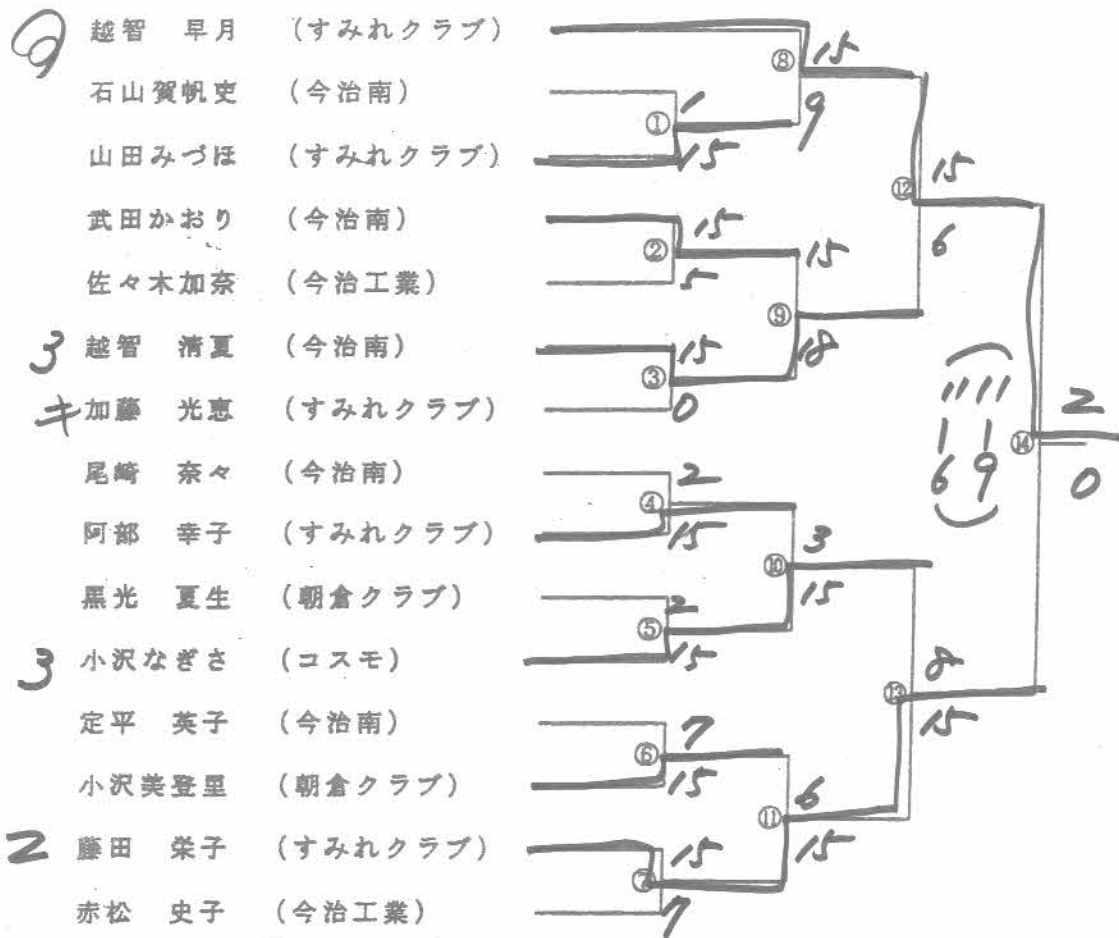 越智 早月 (すみれクラブ)
石山賀帆吏 (今治南)
山田みづほ (すみれクラブ)
武田かおり (今治南)
佐々木加奈 (今治工業)
3 越智 清夏 (今治南)
加藤 光恵 (すみれクラブ)
尾崎 奈々 (今治南)
阿部 幸子 (すみれクラブ)
黒光 夏生 (朝倉クラブ)
3 小沢なぎさ (コスモ)
定平 英子 (今治南)
小沢美登里 (朝倉クラブ)
2 藤田 栄子 (すみれクラブ)
赤松 史子 (今治工業)
① 1 15
② 15 5
③ 15 0
④ 2 15
⑤ 2 15
⑥ 7 15
⑦ 15 7
⑧ 15 9
⑨ 15 18
⑩ 3 15
⑪ 6 15
⑫ 15 6
⑬ 8 15
⑭ 2 0
11 11
6 9